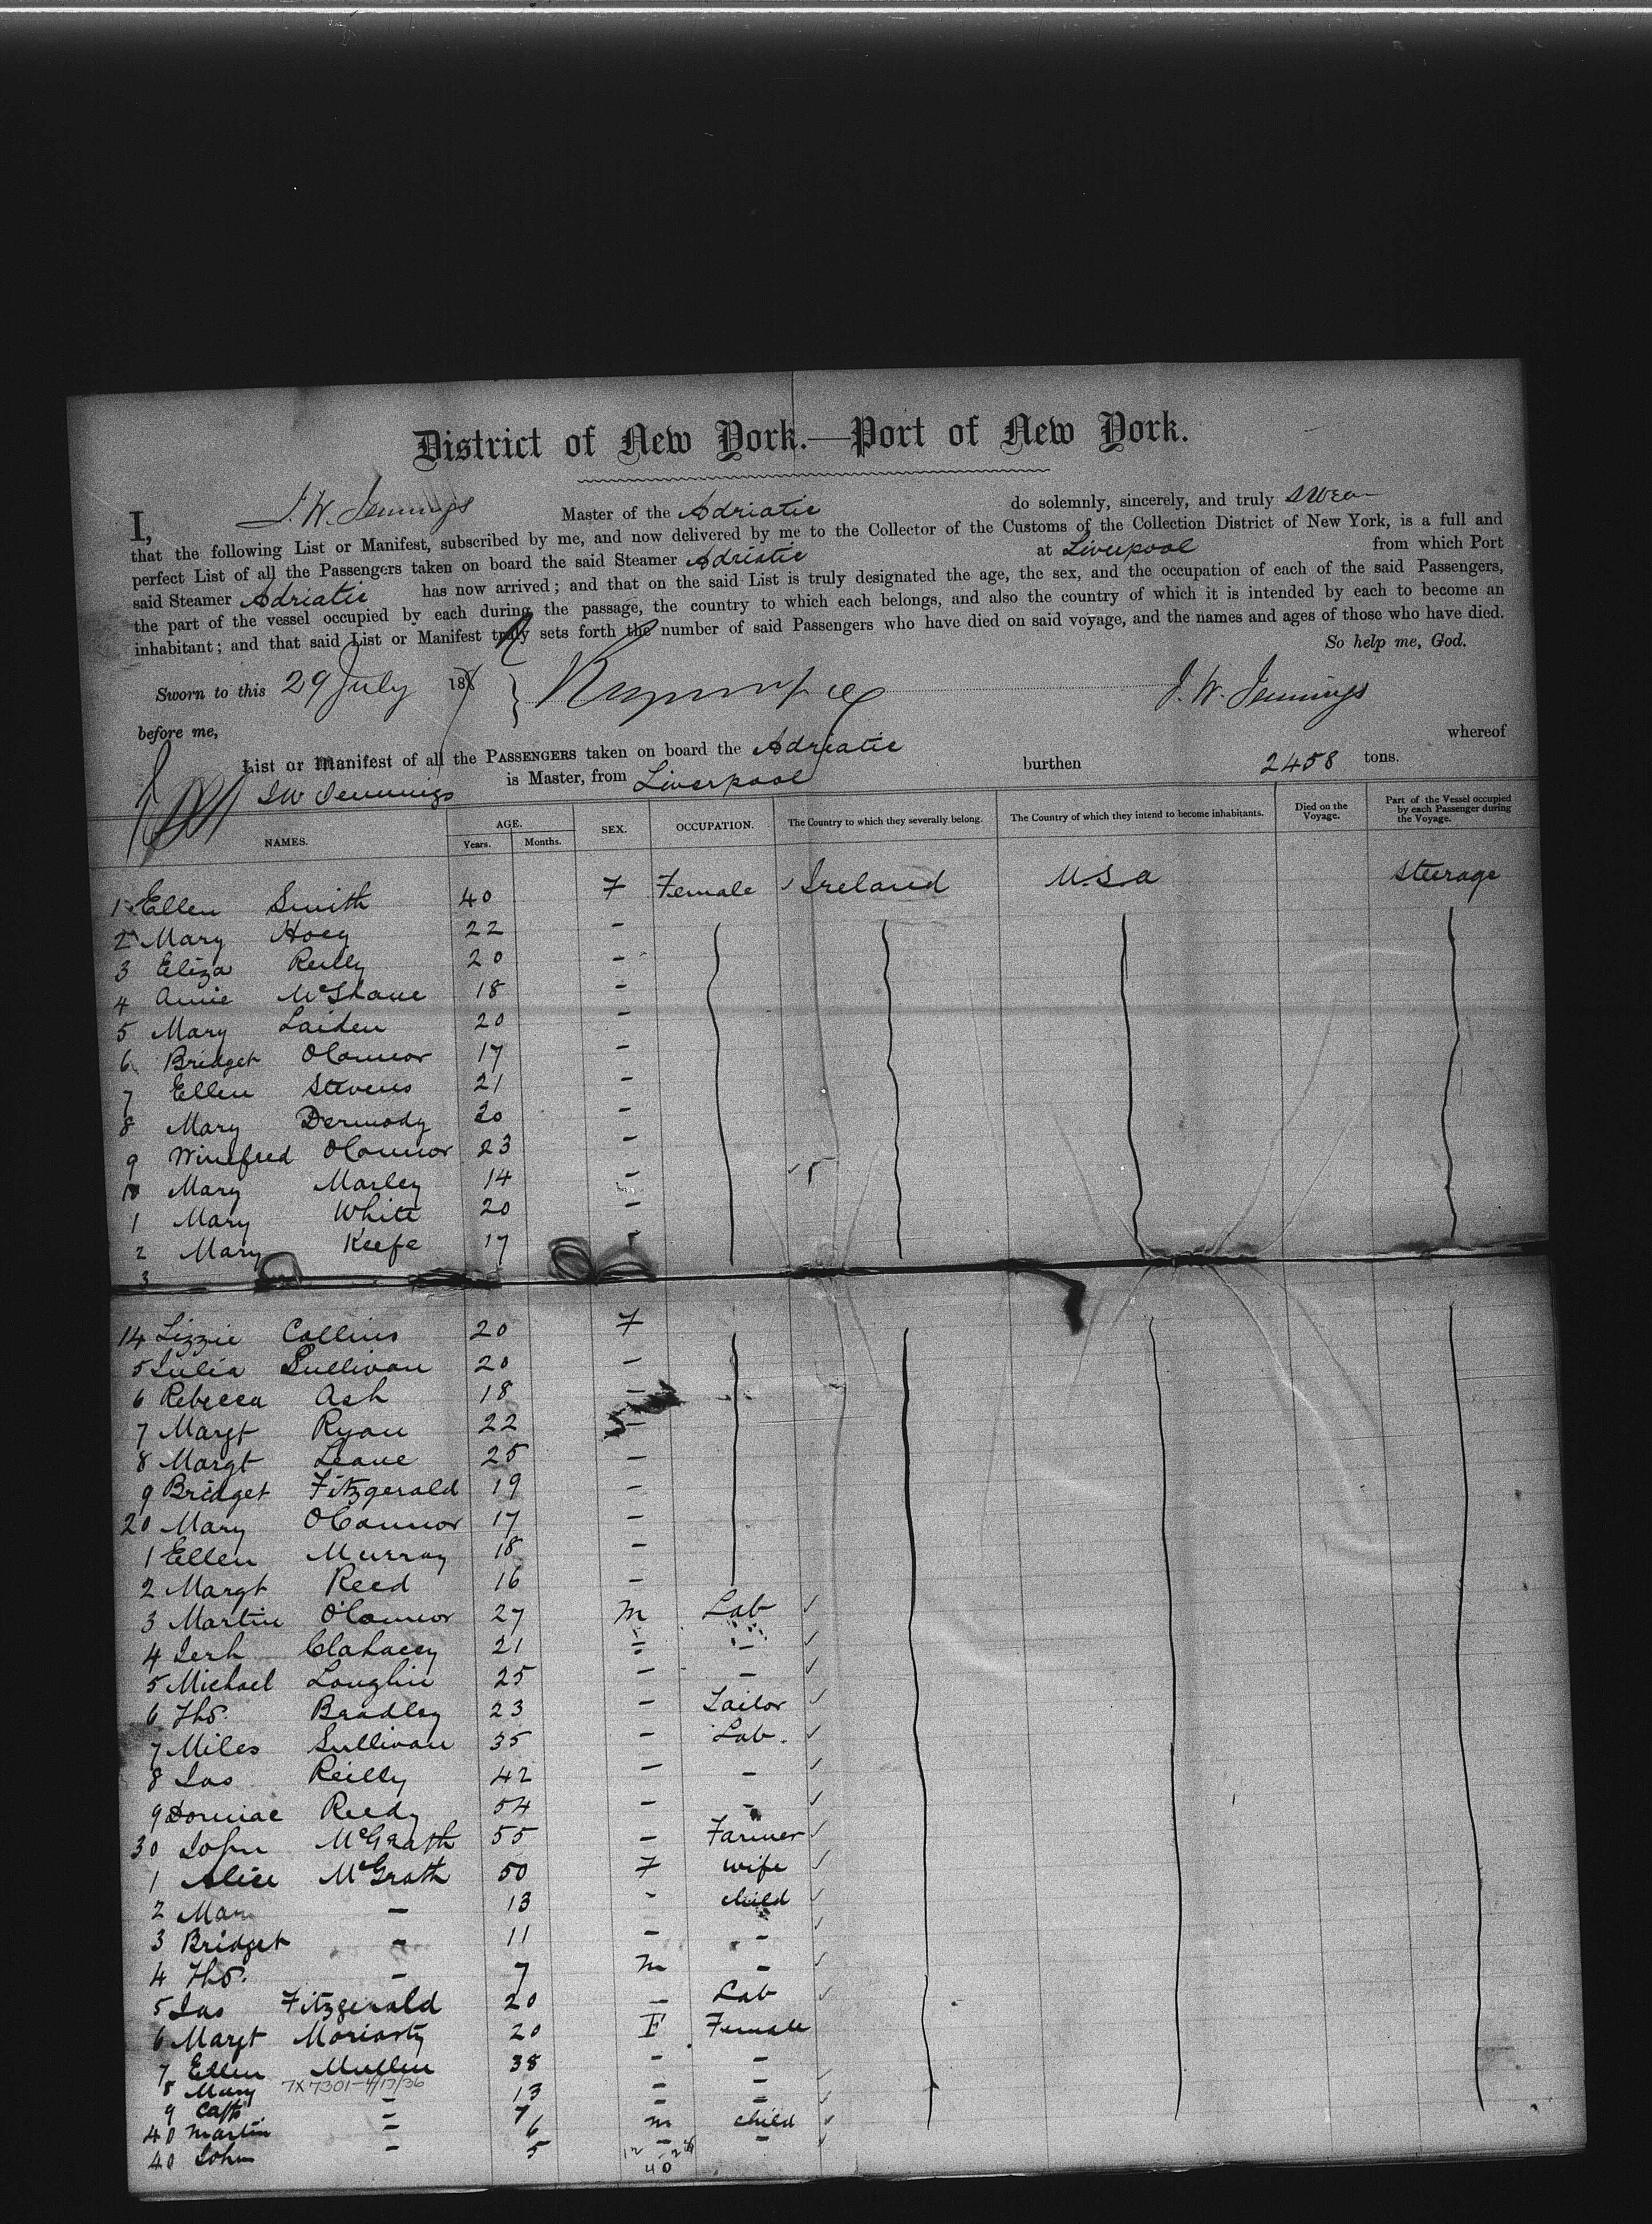 District of New York.—Port of New York.
I, J. W. Jennings Master of the Adriatic do solemnly, sincerely, and truly swear
that the following List or Manifest, subscribed by me, and now delivered by me to the Collector of the Customs of the Collection District of New York, is a full and
perfect List of all the Passengers taken on board the said Steamer Adriatic at Liverpool from which Port
said Steamer Adriatic has now arrived; and that on the said List is truly designated the age, the sex, and the occupation of each of the said Passengers,
the part of the vessel occupied by each during the passage, the country to which each belongs, and also the country of which it is intended by each to become an
inhabitant; and that said List or Manifest truly sets forth the number of said Passengers who have died on said voyage, and the names and ages of those who have died.
So help me, God.
Sworn to this 29 July 18 J. W. Jennings
before me,
List or Manifest of all the PASSENGERS taken on board the Adriatic whereof
J W Jennings is Master, from Liverpool burthen 2458 tons.
NAMES. AGE. Years. Months. SEX. OCCUPATION. The Country to which they severally belong. The Country of which they intend to become inhabitants. Died on the Voyage. Part of the Vessel occupied by each Passenger during the Voyage.
1 Ellen Smith 40 F Female Ireland U.S.a Steerage
2 Mary Hoey 22 -
3 Eliza Reilly 20 -
4 Annie McShane 18 -
5 Mary Laiden 20 -
6 Bridget OConnor 17 -
7 Ellen Stevens 21 -
8 Mary Dermody 20 -
9 Winefred OConnor 23 -
10 Mary Marley 14 -
1 Mary White 20 -
2 Mary Keefe 17 -
3
14 Lizzie Collins 20 F
5 Julia Sullivan 20 -
6 Rebecca Ash 18 -
7 Margt Ryan 22 -
8 Margt Leane 25 -
9 Bridget Fitzgerald 19 -
20 Mary OConnor 17 -
1 Ellen Murray 18 -
2 Margt Reed 16 -
3 Martin O'Connor 27 M Lab
4 Jerh Clahacey 21 - -
5 Michael Loughlin 25 - -
6 Thos. Bradley 23 - Tailor
7 Miles Sullivan 35 - Lab.
8 Jas Reilly 42 - -
9 Reedy 54 - -
30 John McGrath 55 - Farmer
1 Alice McGrath 50 F wife
2 Mary - 13 - child
3 Bridget - 11 - -
4 Thos. - 7 M -
5 Jas Fitzgerald 20 - Lab
6 Margt Moriarty 20 F Female
7 Ellen Mullen 38 - -
7X7301-4/17/36
8 Mary - 13 - -
9 Cath - 7 - -
40 Martin - 6 M child
40 John - 5 - -
12 28
40